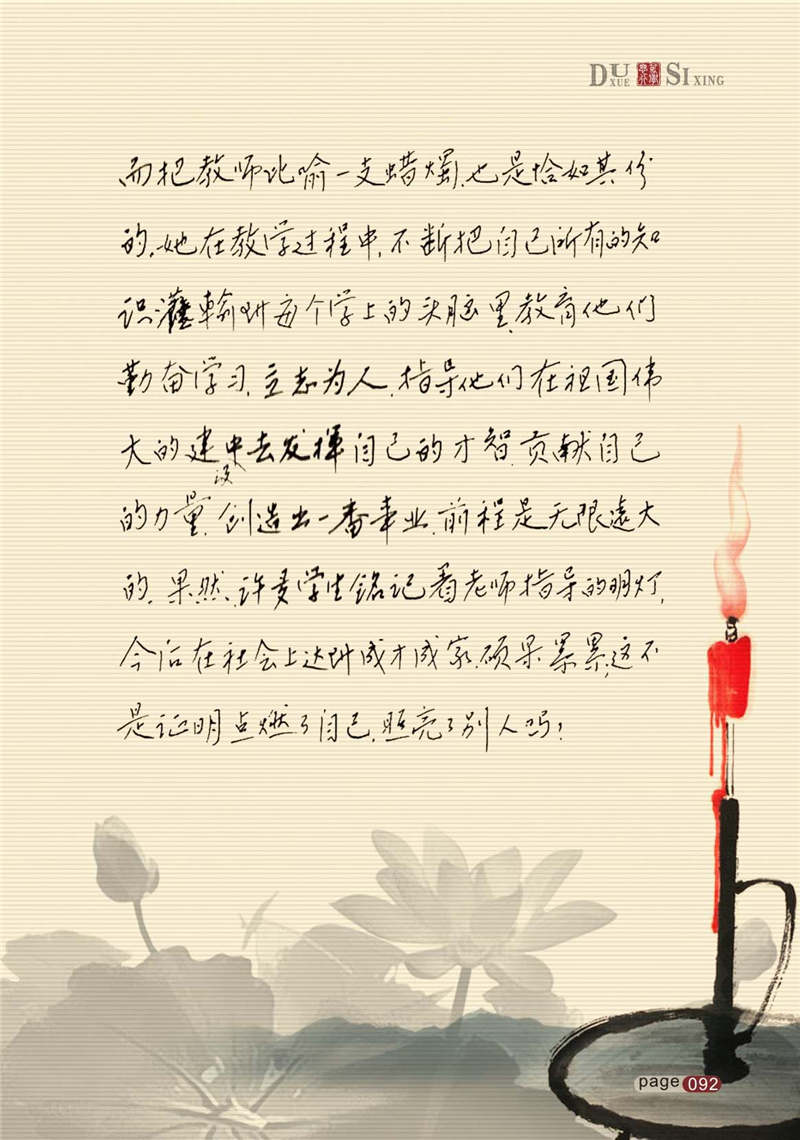 DU XUE SI XING
而把教师比喻一支蜡烛,也是恰如其份
的,她在教学过程中,不断把自己所有的知
识灌输到每个学上的头脑里,教育他们
勤奋学习,立志为人,指导他们在祖国伟
大的建设中去发挥自己的才智,贡献自己
的力量,创造出一番事业,前程是无限远大
的,果然,许多学生铭记着老师指导的明灯,
今后在社会上达到成才成家,硕果累累,这不
是证明点燃了自己,照亮了别人吗?
page 092